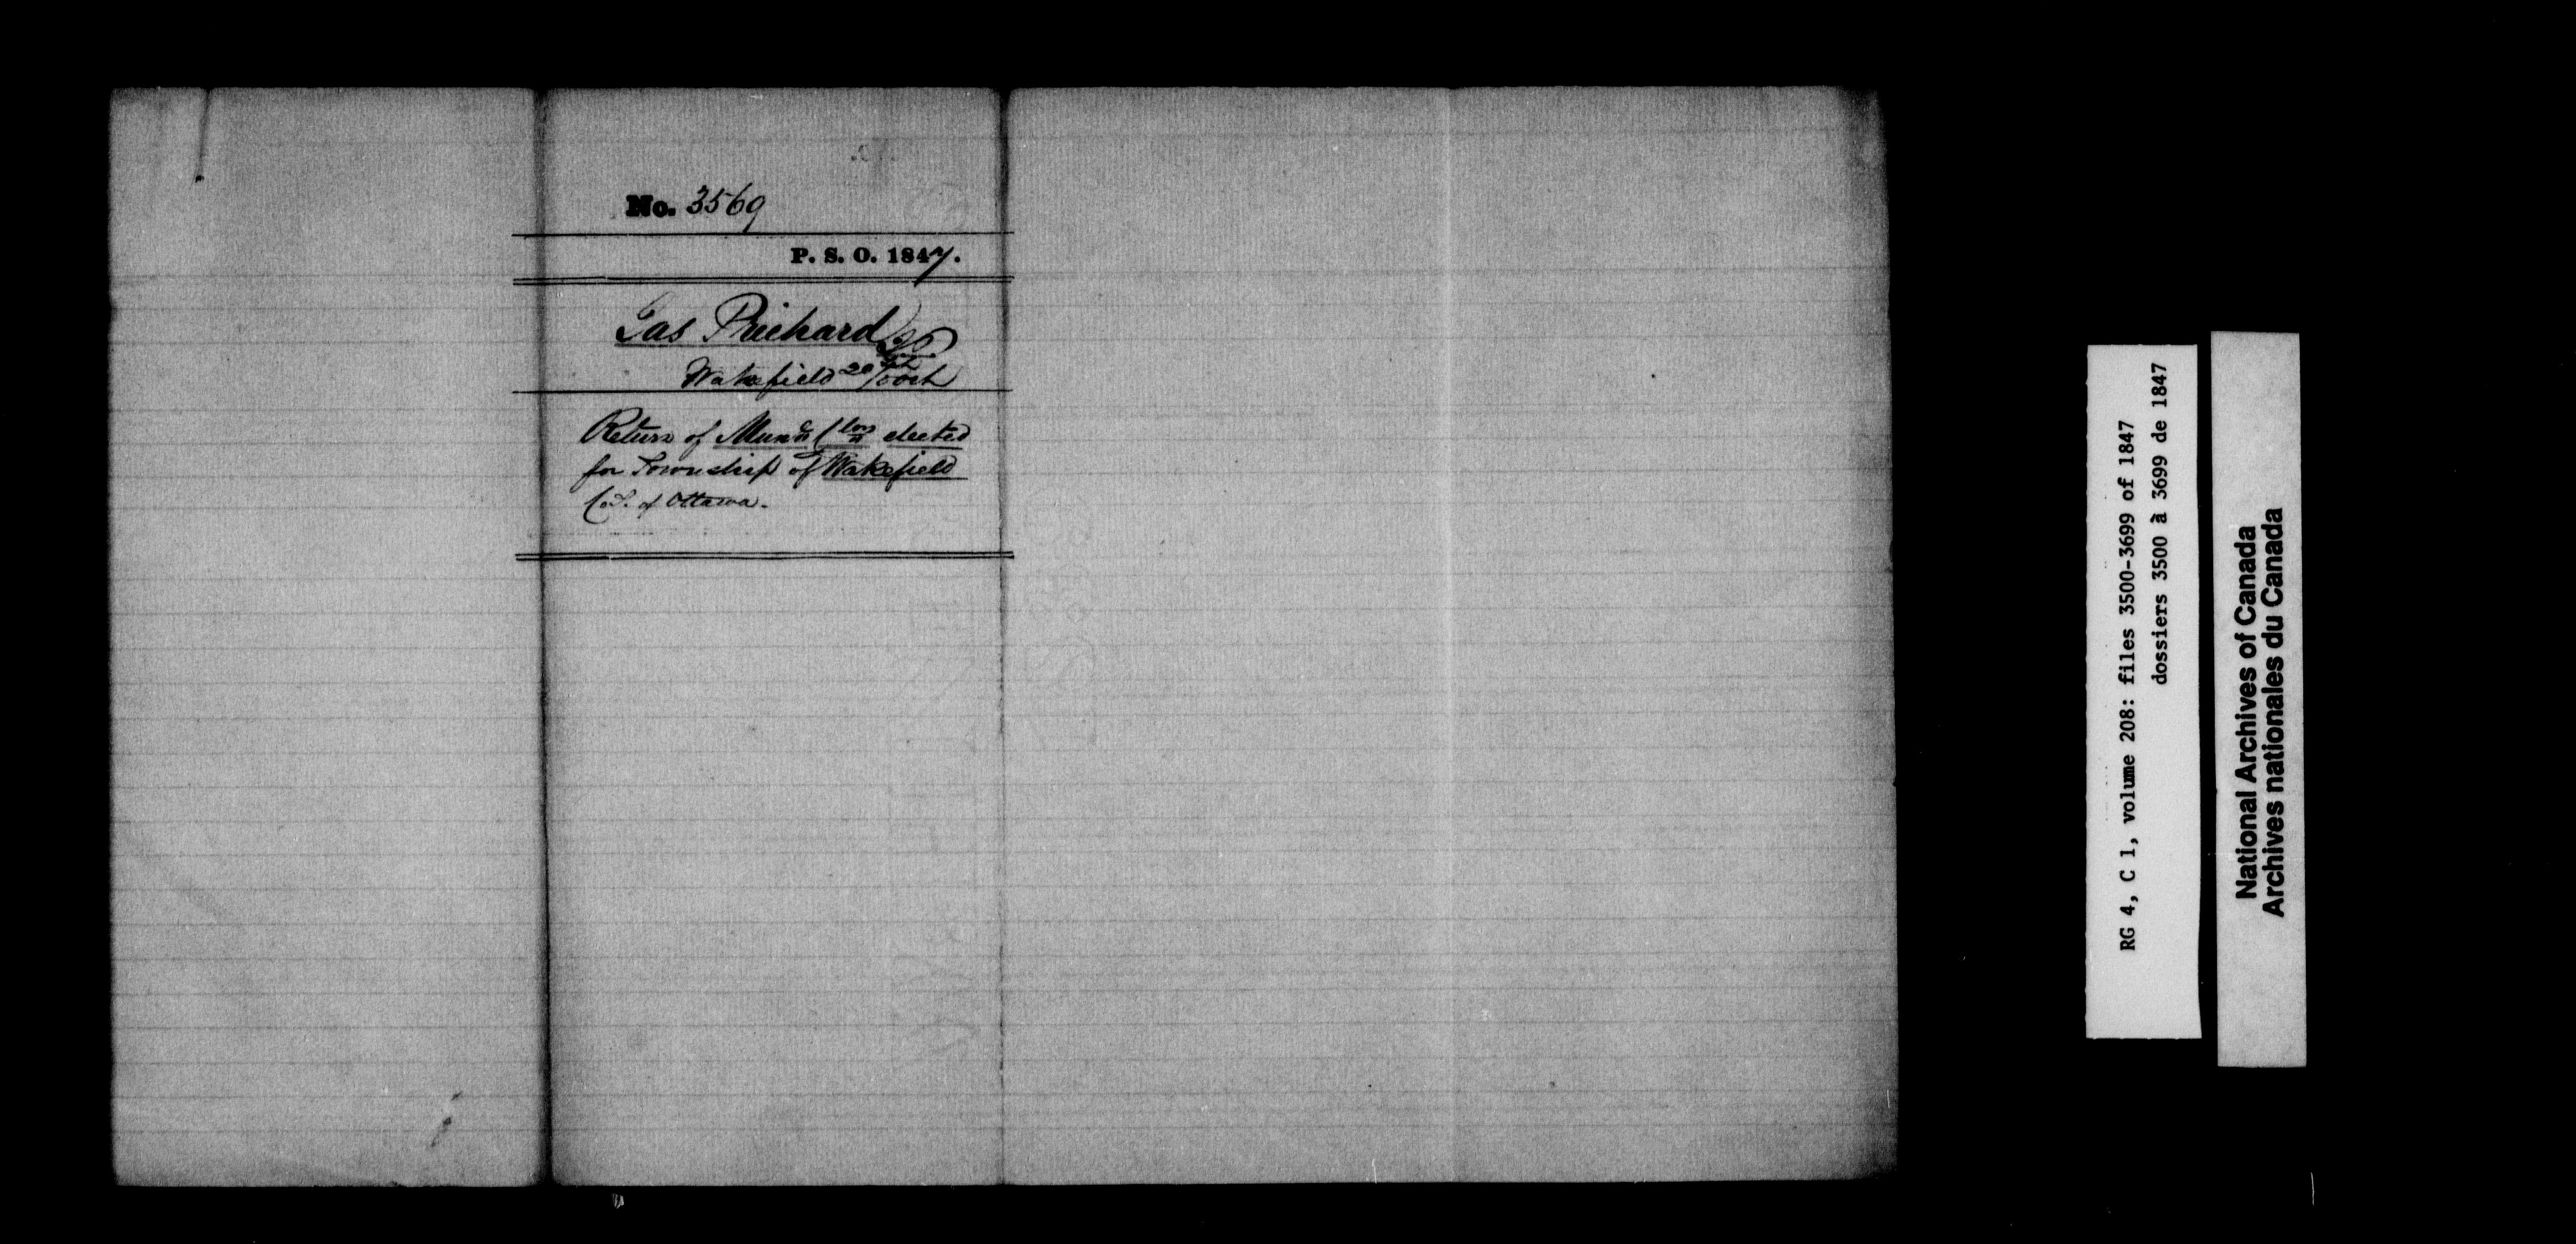 No. 3569
P. S. O. 1847.
Jas Prichard
Wakefield 20th
Return of Mun Cllors elected
for Township of Wakefield
Co. of Ottawa.
RG 4, C 1, volume 208: files 3500-3699 of 1847
dossiers 3500 à 3699 de 1847
National Archives of Canada
Archives nationales du Canada